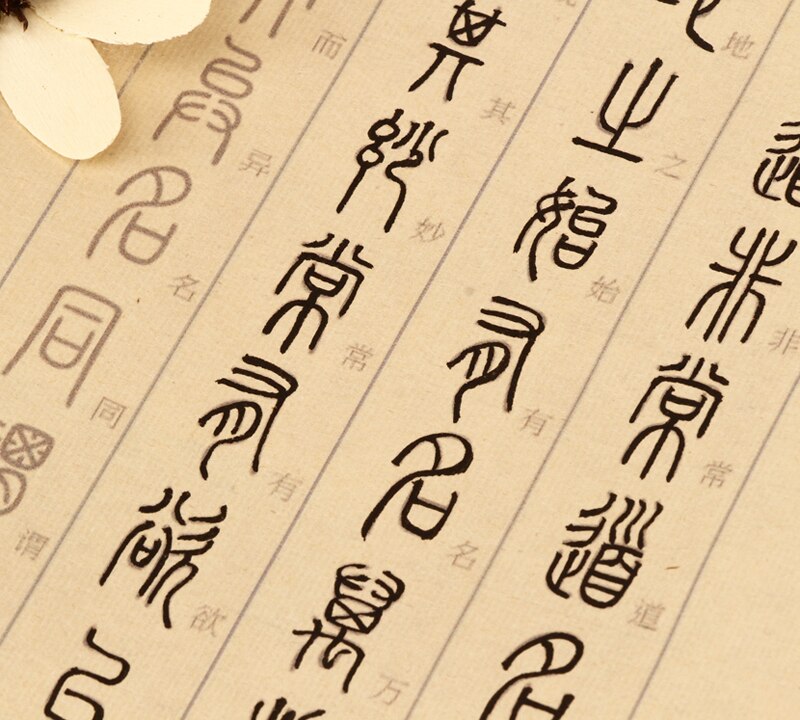 道非常道名
非常道
之始有名萬
地之始有名万
其妙常有欲以
其妙常有欲
異名同謂
而异名同谓